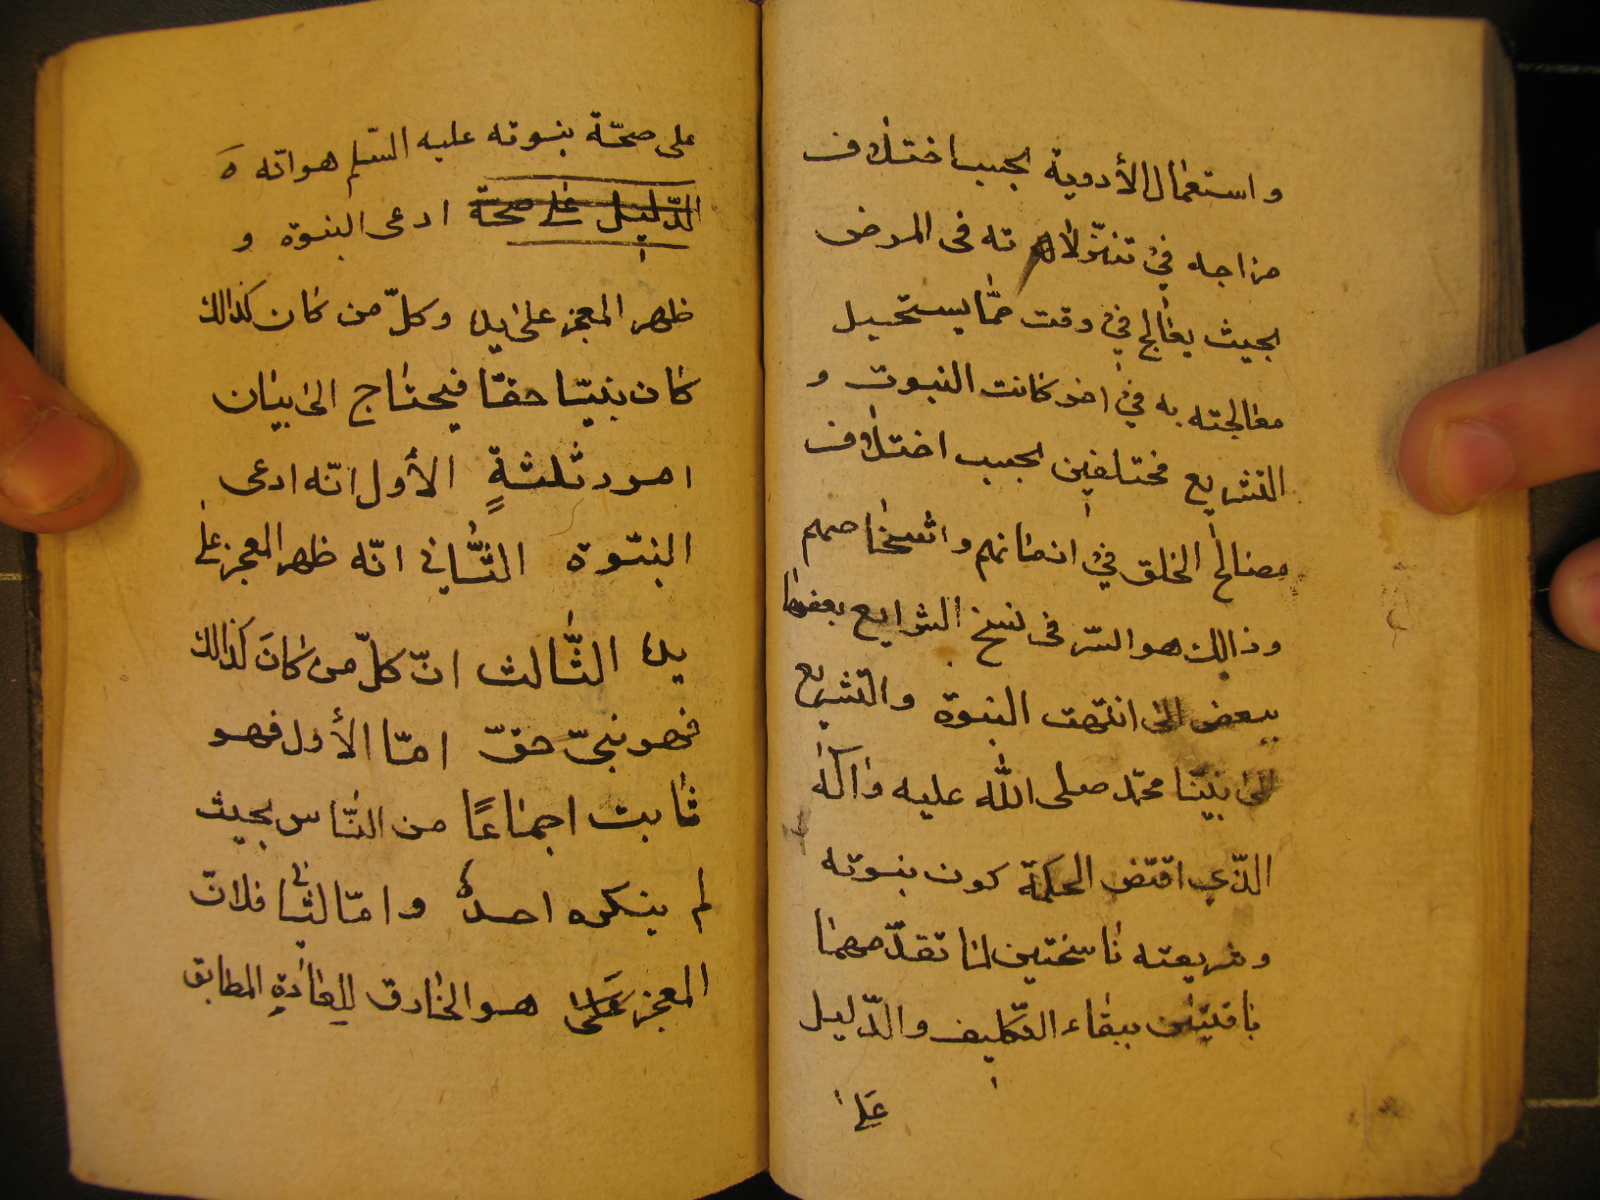 واستعمال الأدوية بحسب اختلاف
مزاجه في تنزلاته في المرض
بحيث يعالج في وقت ممّا يستحيل
معالجته به في اخر كانت النبوت و
التشريع مختلفين بحسب اختلاف
مصالح الخلق في ازمانهم واشخاصهم
وذالك هو السّر في نسخ الشرايع بعضها
ببعض الى انتهت النبوة والتشريع
الى نبيّنا محمّد صلى اللّه عليه واله
الّذي اقتض الحكمة كون نبوته
وشريعته ناسختين لما تقدّمهما
باقيتين ببقاء التكليف والدّليل
على
على صحّة نبوته عليه السّلم هو انّه ه
الدّليل على صحة ادعى النبوة و
ظهر المعجز على يده وكلّ من كان كذالك
كان نبيّا حقّا فيحتاج الى بيان
امور ثلثةٍ الأول انّه ادعى
النبّوة الثّاني انّه ظهر المعجز على
يده الثّالث انّ كلّ من كانَ كذالك
فهو نبىّ حقّ امّا الأول فهو
ثابت اجماعًا من النّاس بحيث
لم ينكره احدٌ وامّا الثّانى فلانّ
المعجز على هو الخارق للعادةِ المطابق